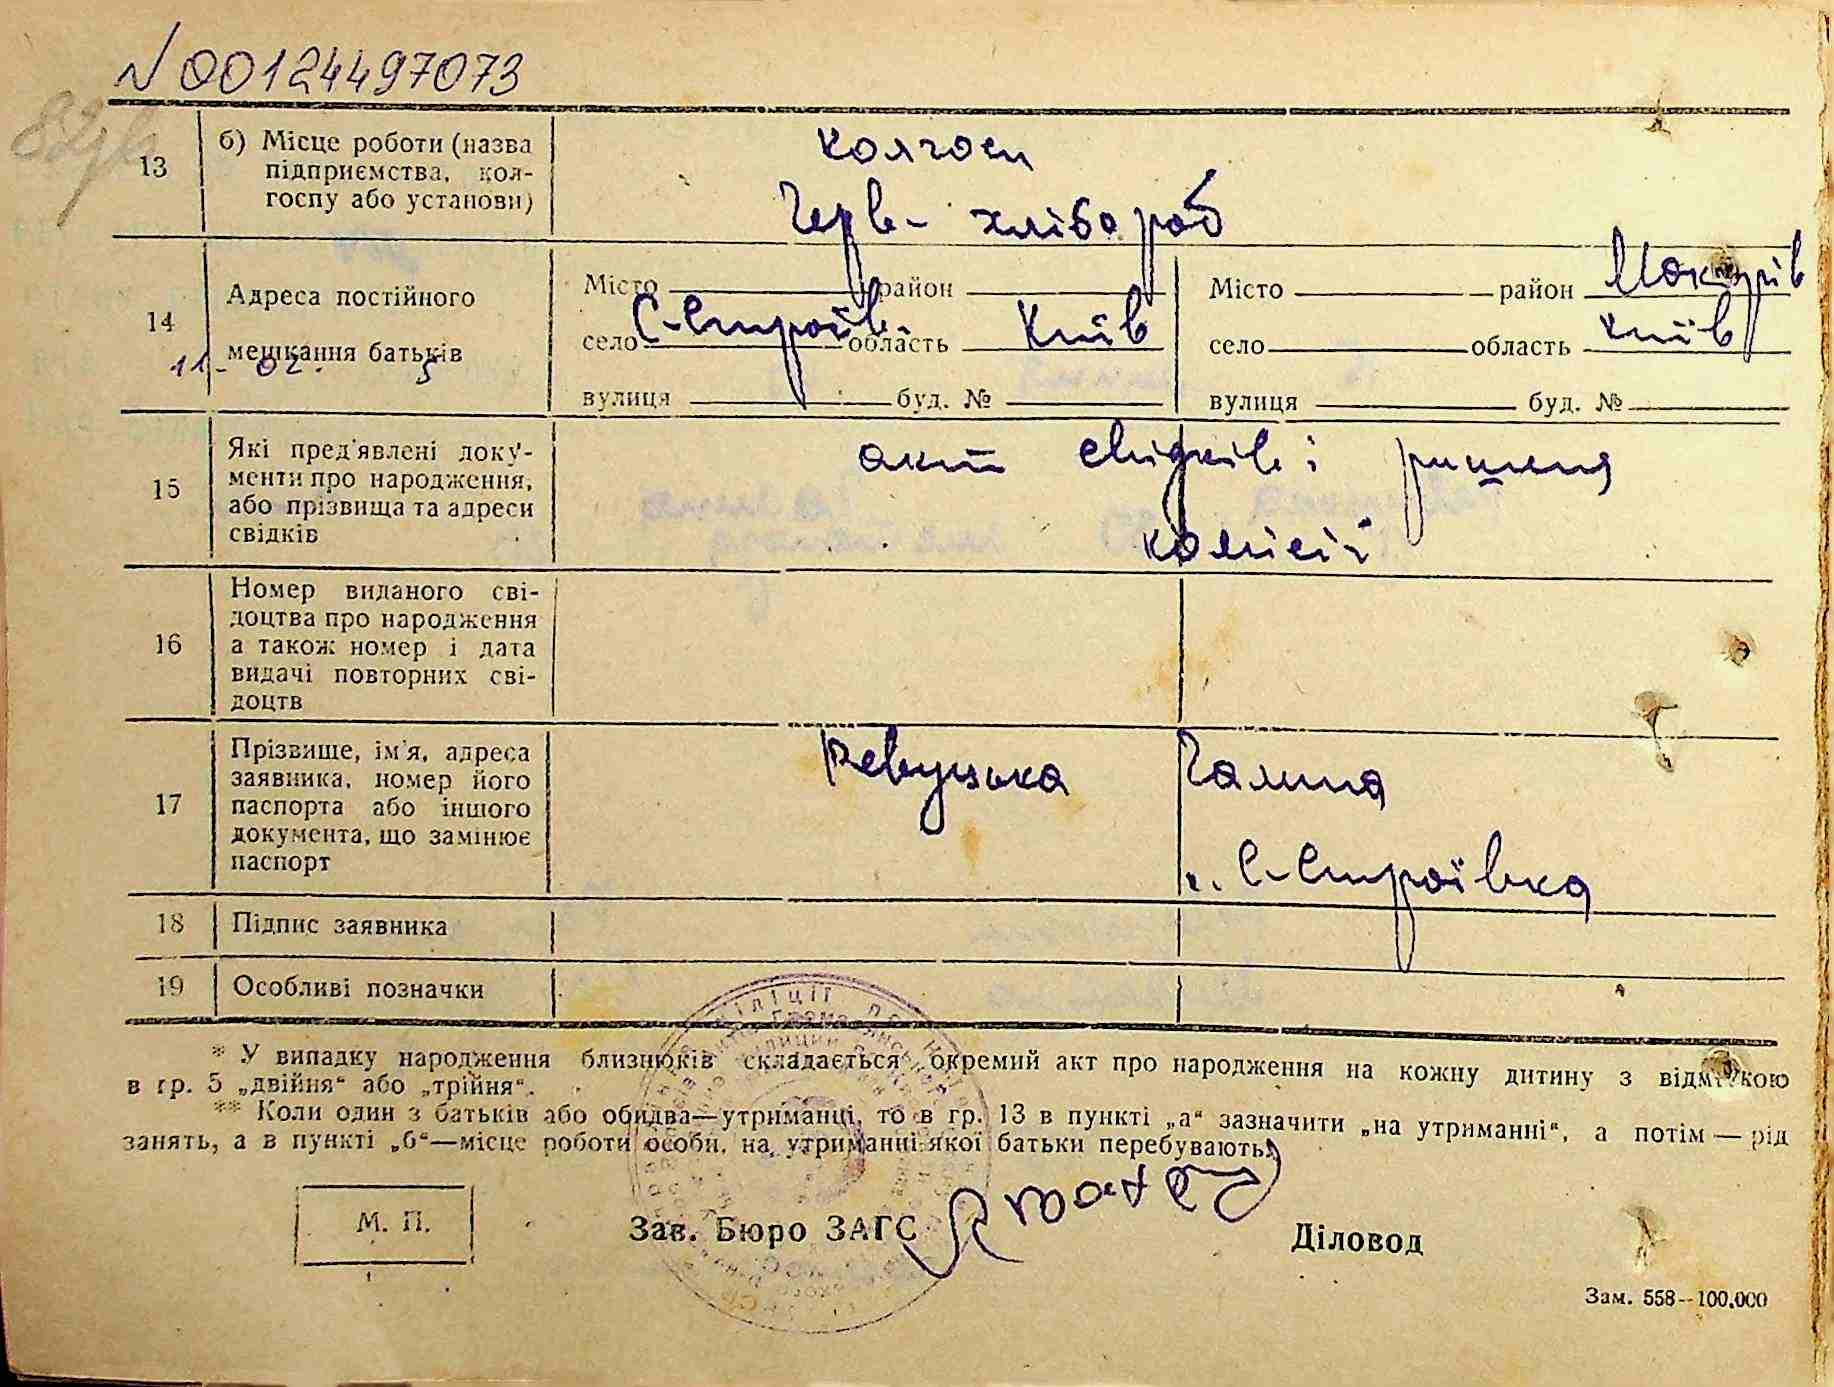 N 00124497073
13
б) Місце роботи (назва
підприємства, кол-
госпу або установи)
колгосп
Черв- хлібороб
14
Адреса постійного
мешкання батьків
11- 02. 5
Місто район
село С-Строїв. область Київ
вулиця буд. №
Місто район Макарів
село область Київ
вулиця буд. №
15
Які пред'явлені доку-
менти про народження,
або прізвища та адреси
свідків
акт свідків і рішення
комісії
16
Номер виданого сві-
доцтва про народження
а також номер і дата
видачі повторних сві-
доцтв
17
Прізвище, ім'я, адреса
заявника, номер його
паспорта або іншого
документа, що замінює
паспорт
Ревуцька Галина
с. С-Строївка
18
Підпис заявника
19
Особливі позначки
* У випадку народження близнюків складається окремий акт про народження на кожну дитину з відміткою
в гр. 5 „двійня“ або „трійня“.
** Коли один з батьків або обидва—утриманці, то в гр. 13 в пункті „а“ зазначити „на утриманні“, а потім — рід
занять, а в пункті „б“—місце роботи особи, на утриманні якої батьки перебувають.
М. П.
Зав. Бюро ЗАГС
Діловод
Зам. 558--100.000